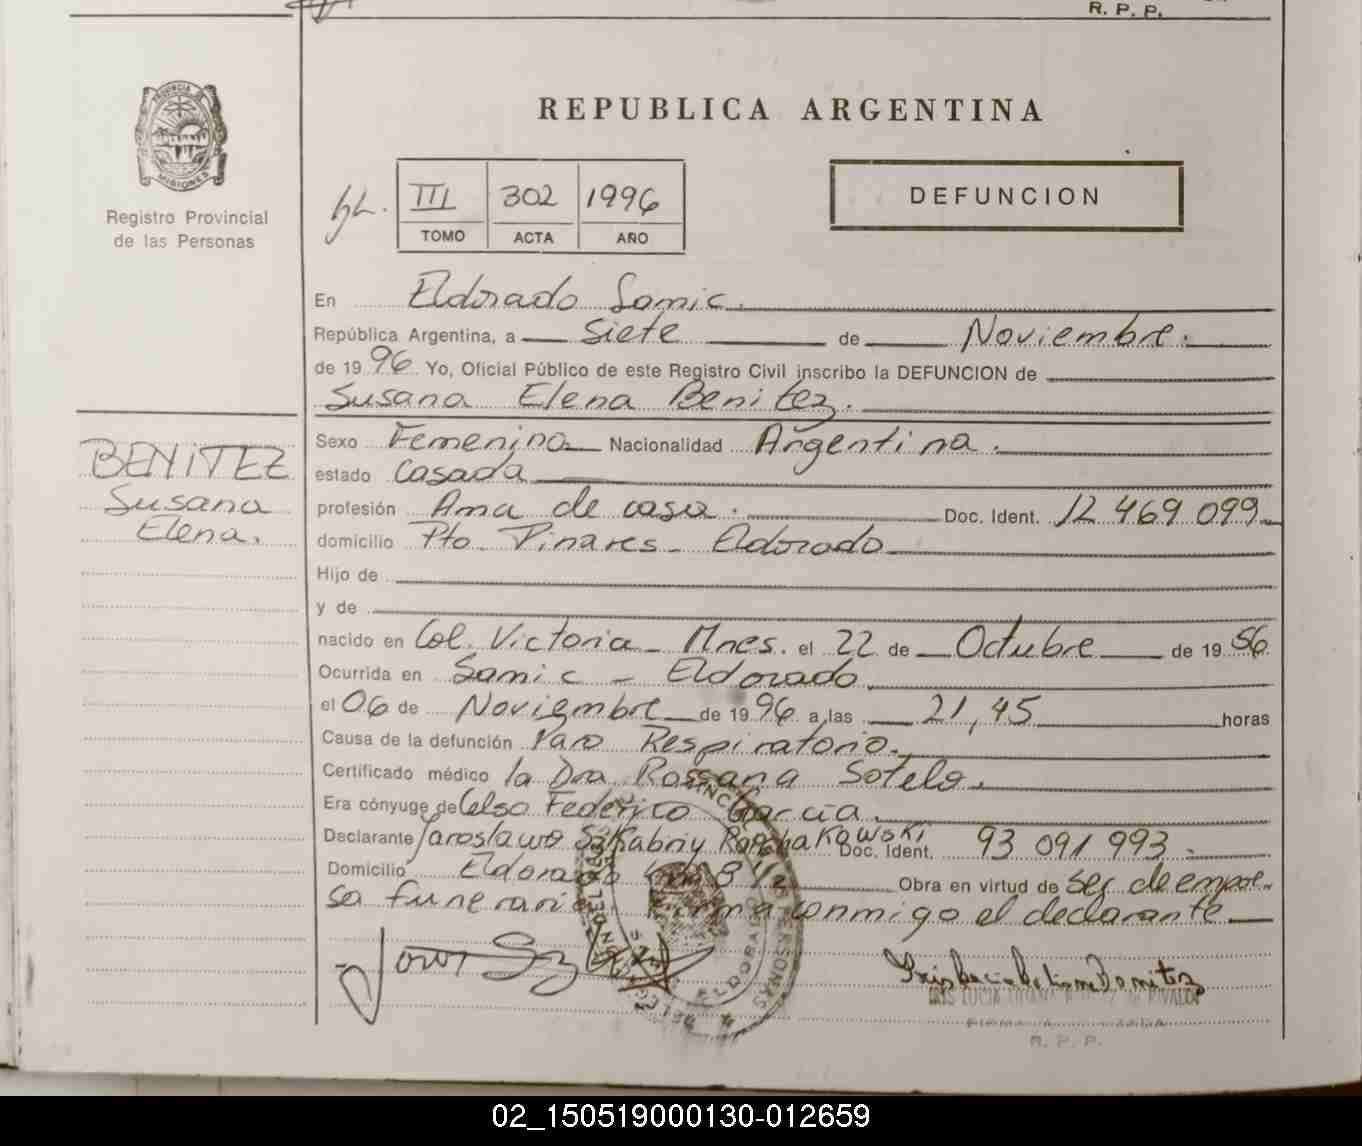 R. P. P.
PROVINCIA DE
MISIONES
Registro Provincial
de las Personas
REPUBLICA ARGENTINA
III 302 1996
TOMO ACTA AÑO
DEFUNCION
En Eldorado Samic.
República Argentina, a siete de Noviembre.
de 1996 Yo, Oficial Público de este Registro Civil inscribo la DEFUNCION de
Susana Elena Benitez.
Sexo Femenino Nacionalidad Argentina.
estado Casada
profesión Ama de casa. Doc. Ident. 12 469 099
domicilio Pto. Pinares - Eldorado
Hijo de
y de
nacido en Col. Victoria - Mnes. el 22 de Octubre de 1956
Ocurrida en Samic - Eldorado
el 06 de Noviembre de 1996 a las 21,45 horas
Causa de la defunción Paro Respiratorio.
Certificado médico la Dra Rossana Sotelo.
Era cónyuge de Celso Federico Garcia.
Declarante Jaroslawo Doc. Ident. 93 091 993.
Domicilio Eldorado Obra en virtud de ser de empre
sa funeraria. Firma conmigo el declarante
BENITEZ
Susana
Elena.
ELDORADO
R. P. P.
02_150519000130-012659